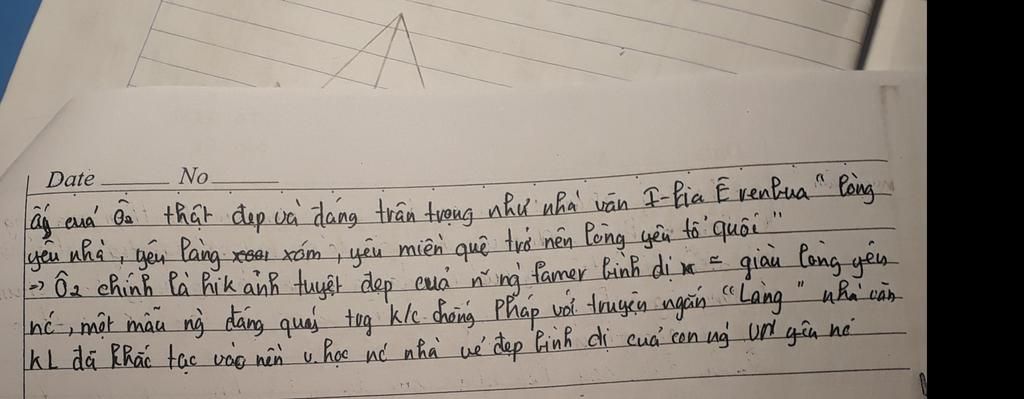 Date No
ấy của Ô2 thật đẹp và đáng trân trọng như nhà văn I-lia Ê renbua "lòng
yêu nhà, yêu làng xóm, yêu miền quê trở nên lòng yêu tổ quốc"
=> Ô2 chính là hik ảnh tuyệt đẹp của n~ ng famer bình dị = giàu lòng yêu
nc, một mẫu ng đáng quý tvg k/c chống Pháp với truyện ngắn "Làng" nhà văn
KL đã khắc tạc vào nền v.học nc nhà vẻ đẹp bình dị của con ng VN yêu nc